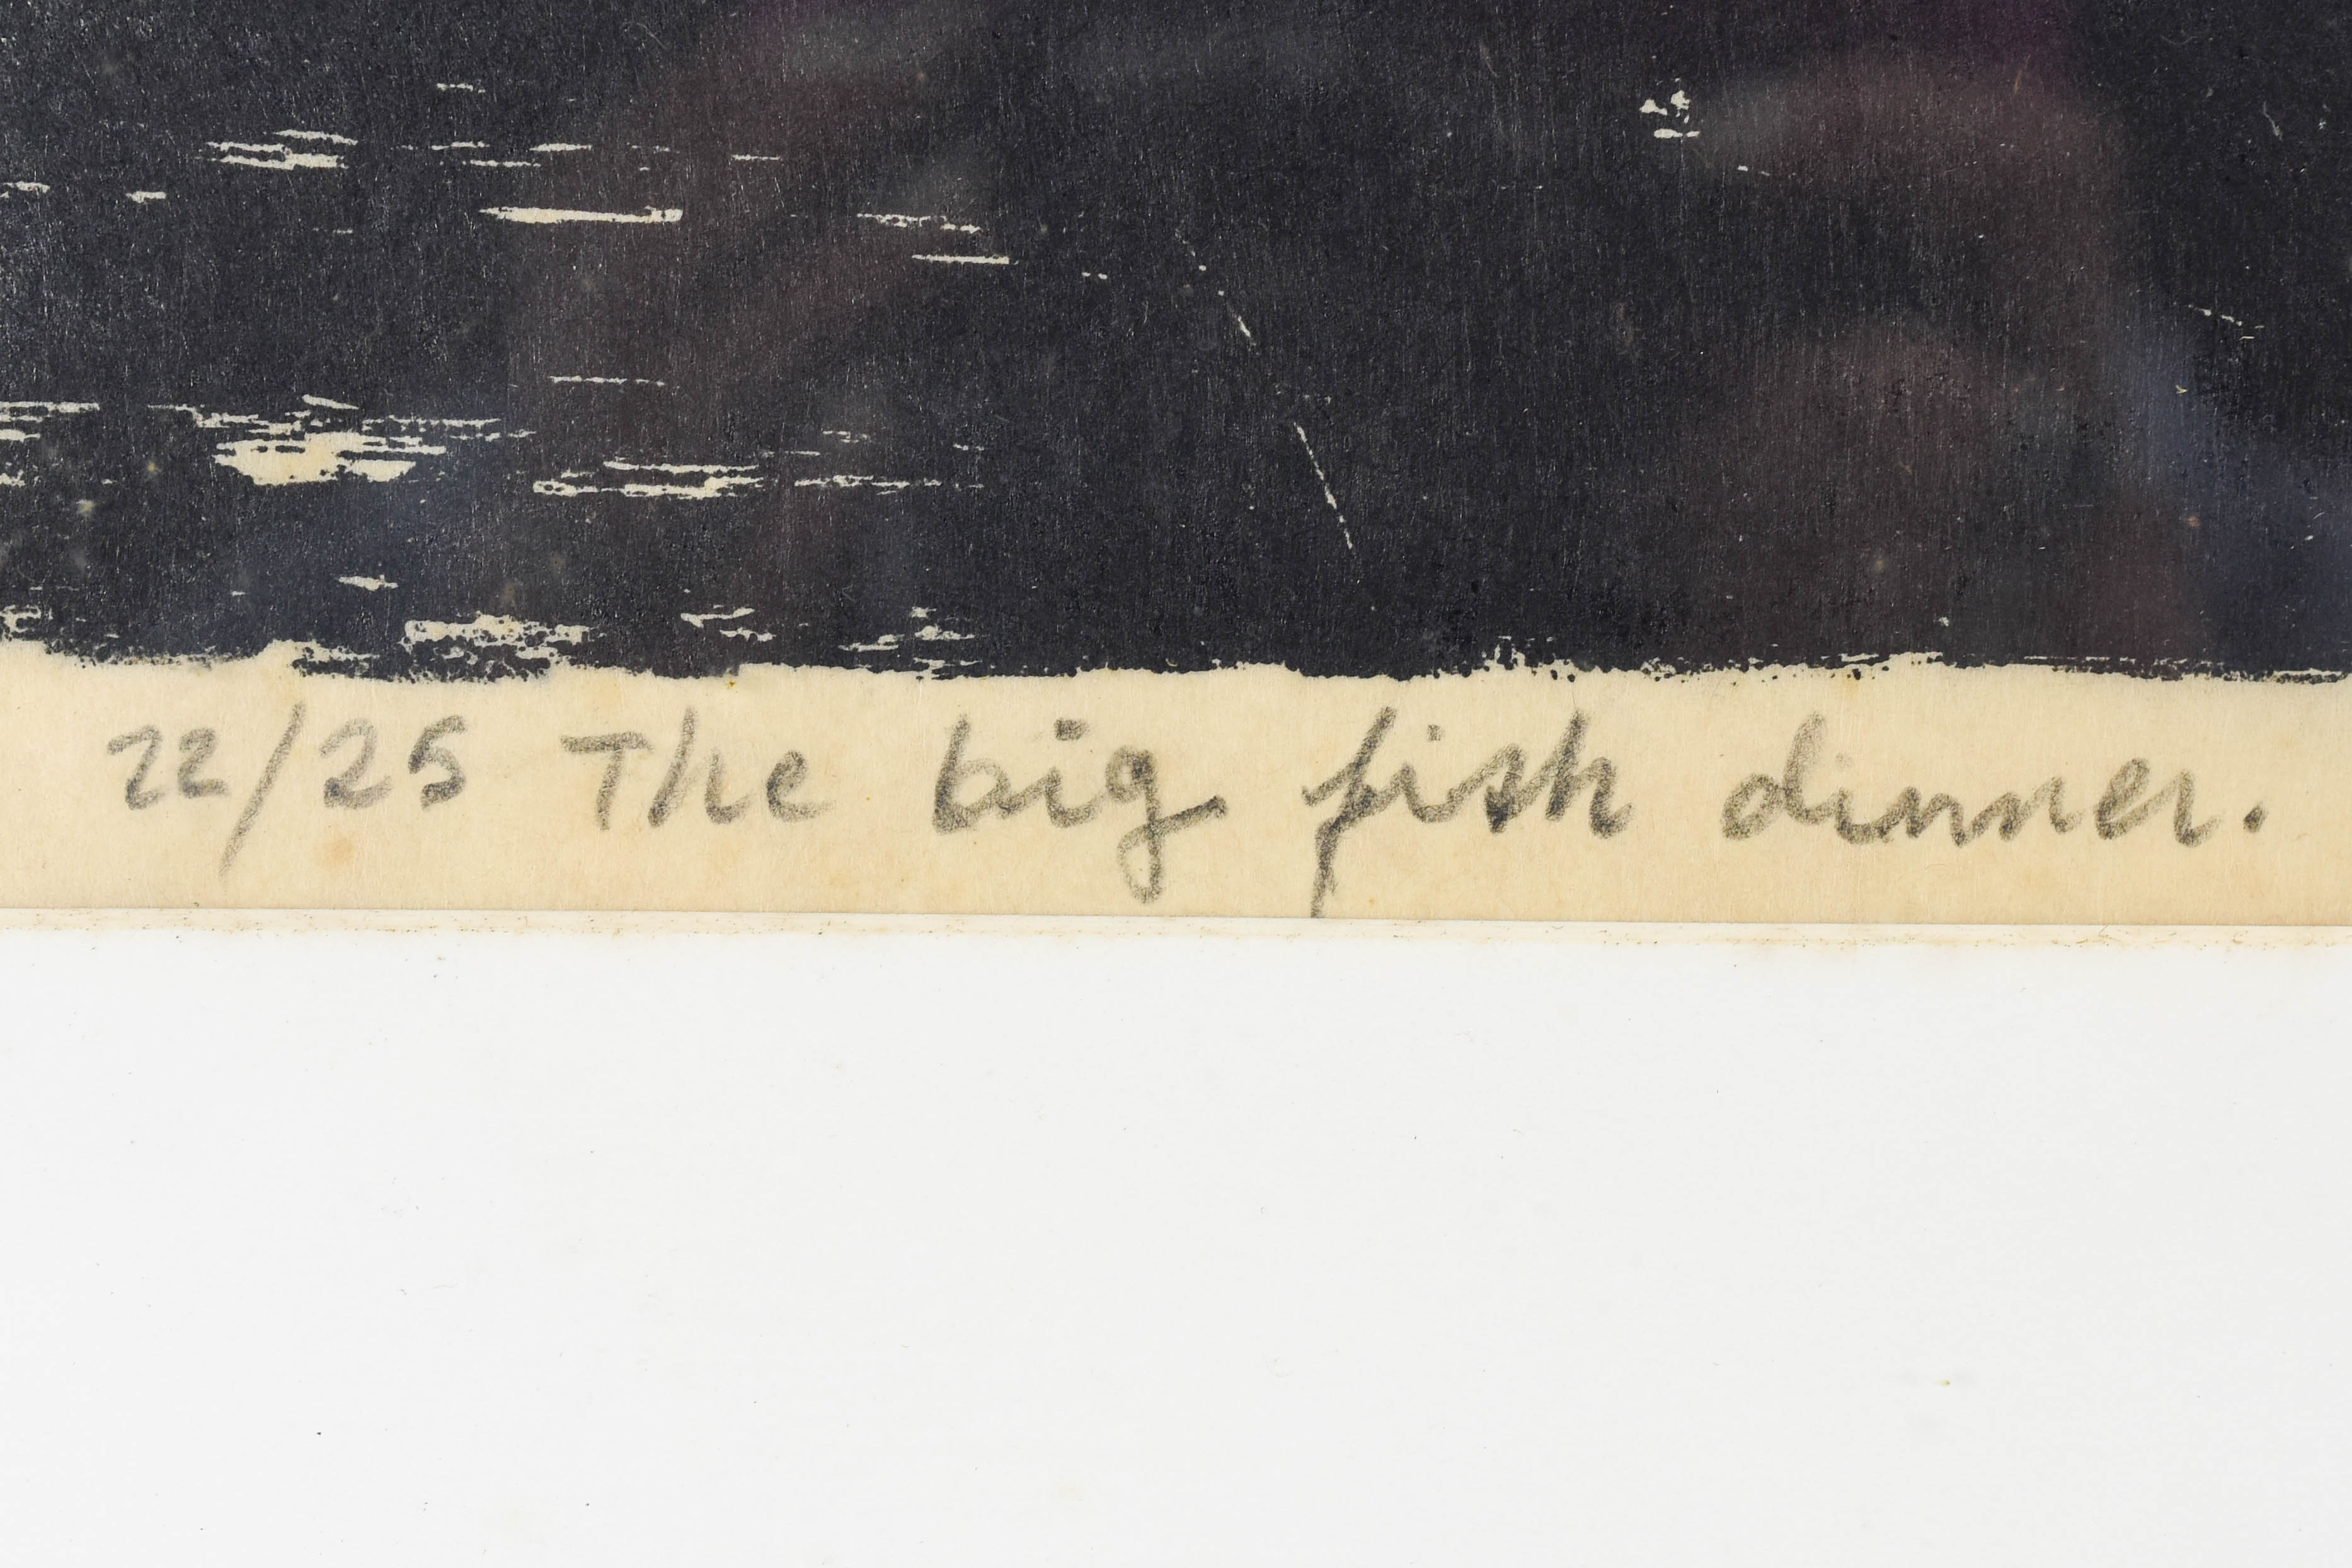 22/25 The big fish dinner.